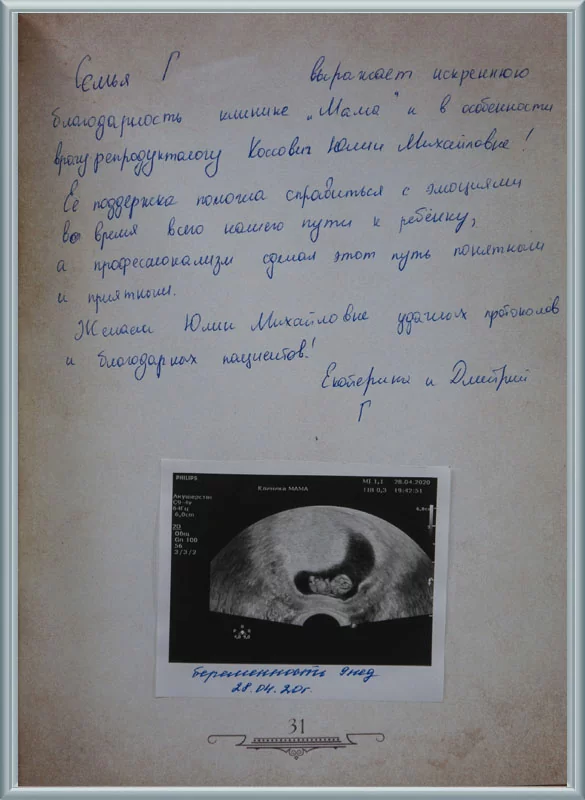 Семья Г выражает искреннюю
благодарность клинике „Мама" и в особенности
врачу репродуктологу Коссович Юлии Михайловне!
Её поддержка помогла справиться с эмоциями
во время всего нашего пути к ребёнку,
а профессионализм сделал этот путь понятным
и приятным.
Желаем Юлии Михайловне удачных протоколов
и благодарных пациентов!
Екатерина и Дмитрий
Г
PHILIPS
Клиника МАМА
MI 1,1 28.04.2020
TIB 0,3 19:42:51
Акушерство
C9-4v
64Гц
6,0cm
2D
Общ
Gn 100
56
3/3/2
беременность 9нед
28.04.20г.
31